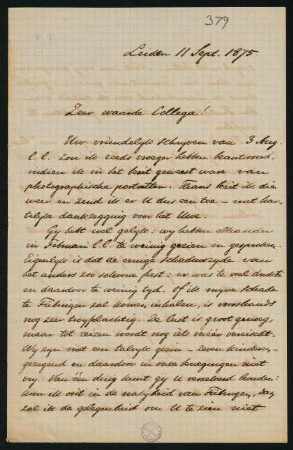 379
Leiden 11 Sept. 1875
Zeer waarde Collega!
Uw vriendelijk schrijven van 3 Aug.
l.l. zou ik reeds vroeger hebben beantwoord,
indien ik in het bezit geweest ware van
photographische portretten. Thans bezit ik die
weer en zend ik er U dus een toe – met har-
telijke dankzegging voor het Uwe.
Gij hebt wel gelijk: wij hebben elkander
in Februari l.l. te weinig gezien en gesproken.
Eigenlijk is dat de eenige schaduwzijde van
het anders zoo schoone feest: er was te veel drukte
en daardoor te weinig tijd. Of ik mijne schade
te Tübingen zal komen inhalen, is voorshands
nog zeer twijfelachtig. De lust is groot genoeg,
maar tot reizen wordt nog al iets vereischt.
Wij zijn met een talrijk gezin – zeven kinderen –
gezegend en daardoor in onze bewegingen niet
vrij. Van één ding kunt gij U verzekerd houden:
kom ik ooit in de nabijheid van Tübingen, dan
zal ik de gelegenheid om U te zien niet